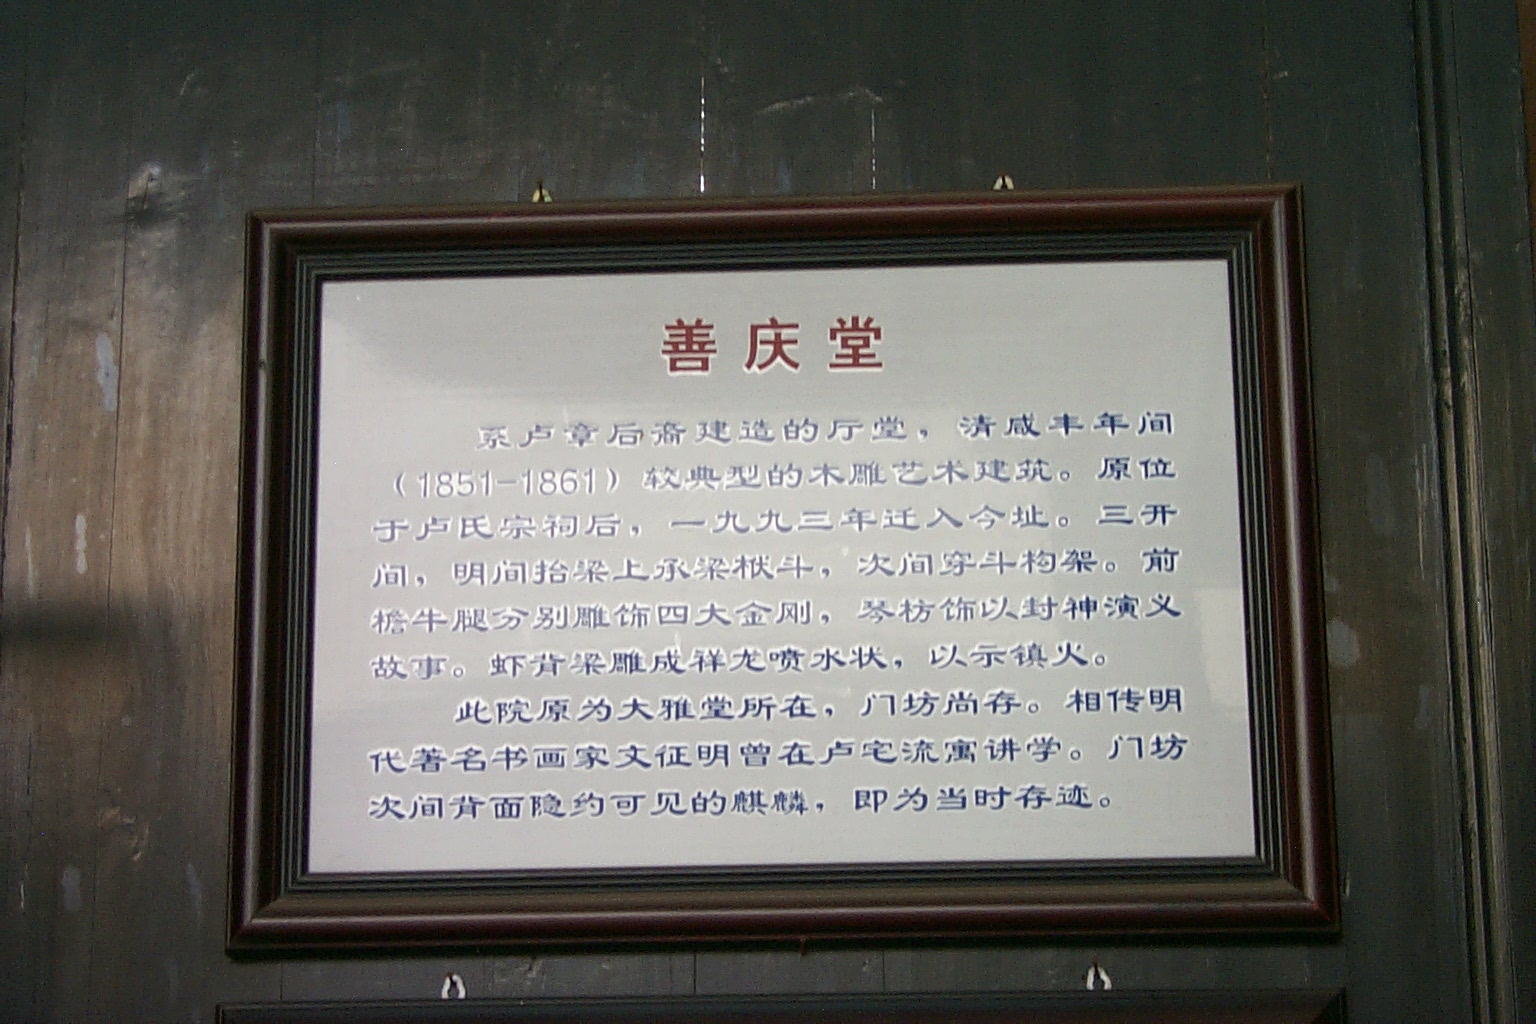 善庆堂
系卢章后裔建造的厅堂，清咸丰年间
（1851-1861）较典型的木雕艺术建筑。原位
于卢氏宗祠后，一九九三年迁入今址。三开
间，明间抬梁上承梁栿斗，次间穿斗构架。前
檐牛腿分别雕饰四大金刚，琴枋饰以封神演义
故事。虾背梁雕成祥龙喷水状，以示镇火。
此院原为大雅堂所在，门坊尚存。相传明
代著名书画家文征明曾在卢宅流寓讲学。门坊
次间背面隐约可见的麒麟，即为当时存迹。